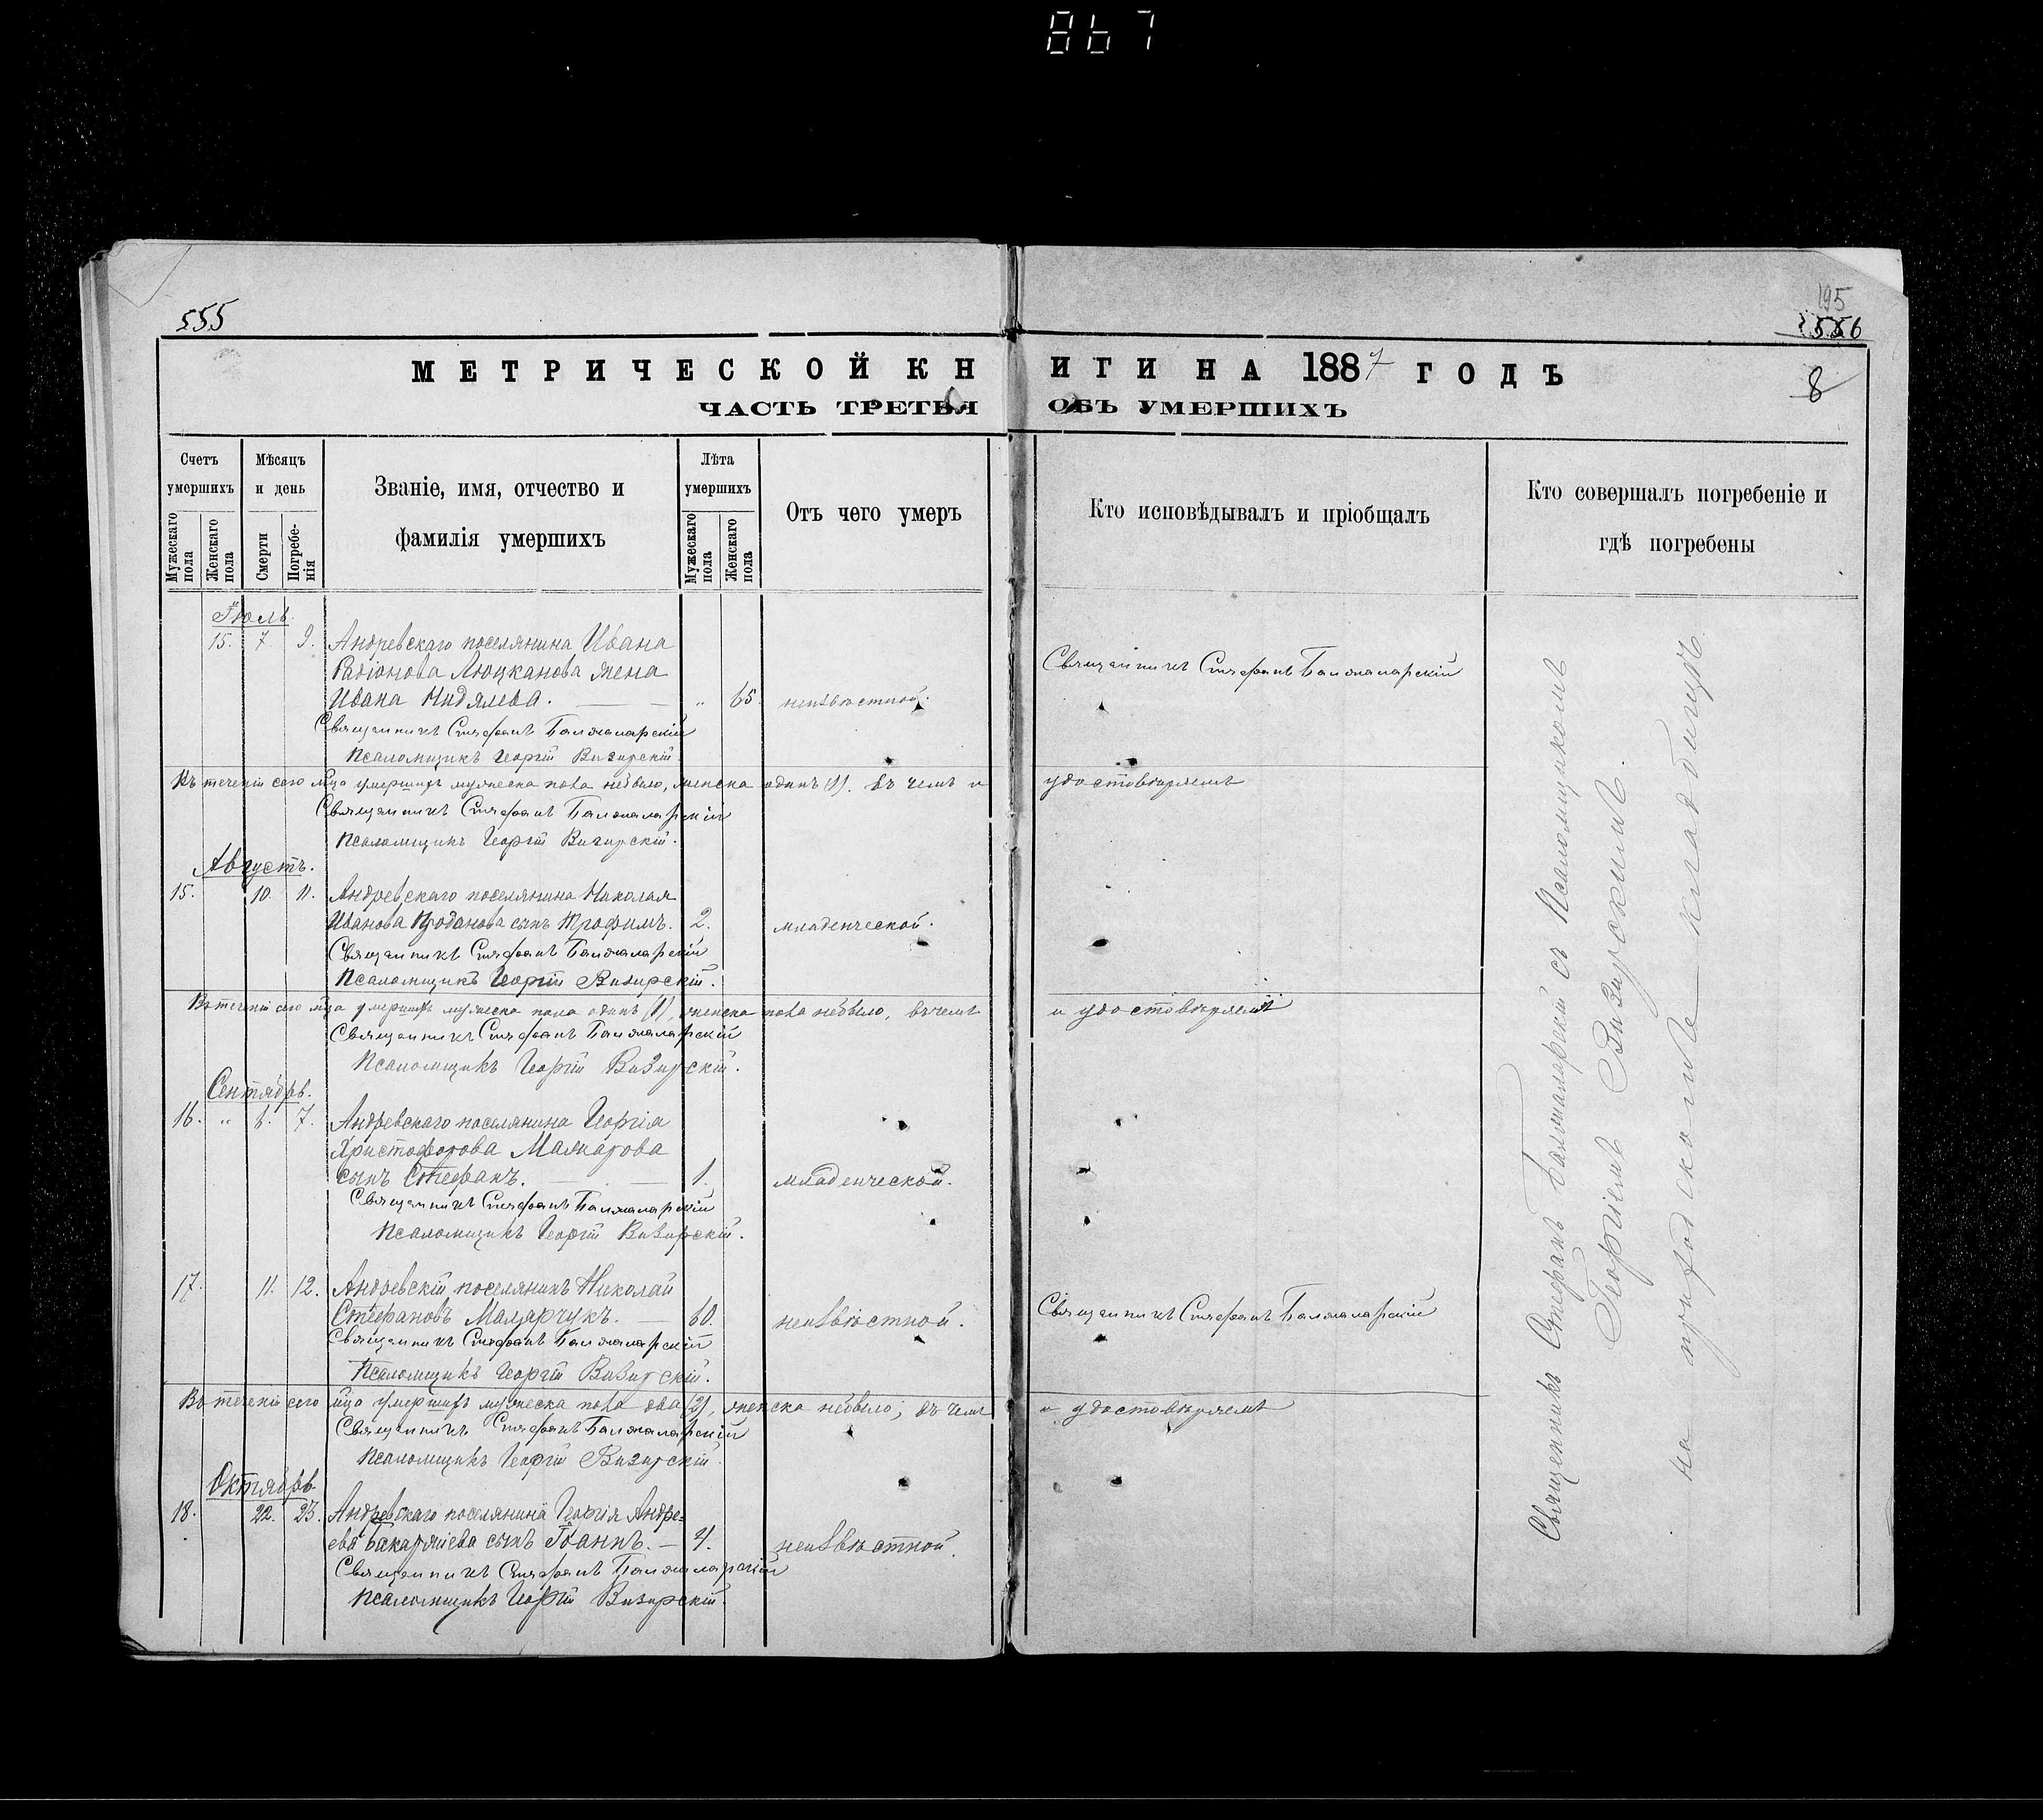 867
555
195
556
8
МЕТРИЧЕСКОЙ КНИГИ НА 1887 ГОДЪ
ЧАСТЬ ТРЕТЬЯ ОБЪ УМЕРШИХЪ
Счетъ умершихъ
Мужескаго пола
Женскаго пола
Мѣсяцъ и день
Смерти
Погребе-нія
Званіе, имя, отчество и фамилія умершихъ
Лѣта умершихъ
Мужескаго пола
Женскаго пола
Отъ чего умеръ
Кто исповѣдывалъ и пріобщалъ
Кто совершалъ погребеніе и гдѣ погребены
Іюль
15. 7 9. Андревскаго поселянина Ивана
Радіонова Люцканова жена
Ивана Недялева. — — „ 65. неизвѣстной.
Священникъ Стефанъ Балжаларскій
Священникъ Стефанъ Балжаларскій
Псаломщикъ Георгій Визирскій
Въ теченіи сего мца умершихъ мужеска пола небыло, женска одинъ (1). въ чемъ и удостовѣряемъ
Священникъ Стефанъ Балжаларскій
Псаломщикъ Георгій Визирскій.
Августъ.
15. 10. 11. Андревскаго поселянина Николая
Иванова Проданова сынъ Трофимъ. 2. младенческой.
Священникъ Стефанъ Балжаларскій
Псаломщикъ Георгій Визирскій.
Въ теченіи сего мца умершихъ мужеска пола одинъ (1), женска пола небыло, въ чемъ и удостовѣряемъ
Священникъ Стефанъ Балжаларскій
Псаломщикъ Георгій Визирскій.
Сентябрь.
16. „ 6. 7. Андревскаго поселянина Георгія
Христофорова Мажарова
сынъ Стефанъ. — — 1. младенческой.
Священникъ Стефанъ Балжаларскій
Псаломщикъ Георгій Визирскій.
17. 11. 12. Андревскій поселянинъ Николай
Стефановъ Маларчукъ. — 60. неизвѣстной.
Священникъ Стефанъ Балжаларскій
Священникъ Стефанъ Балжаларскій
Псаломщикъ Георгій Визирскій.
Въ теченіи сего мца умершихъ мужеска пола два (2), женска небыло; въ чемъ и удостовѣряемъ
Священникъ Стефанъ Балжаларскій
Псаломщикъ Георгій Визирскій.
Октябрь.
18. 22. 23. Андревскаго поселянина Георгія Андре=
ева сынъ Іоаннъ. — 4. неизвѣстной.
Священникъ Стефанъ Балжаларскій
Псаломщикъ Георгій Визирскій.
Священникъ Стефанъ Балжаларскій съ Псаломщикомъ
Георгіемъ Визирскимъ.
на приходскомъ кладбищѣ